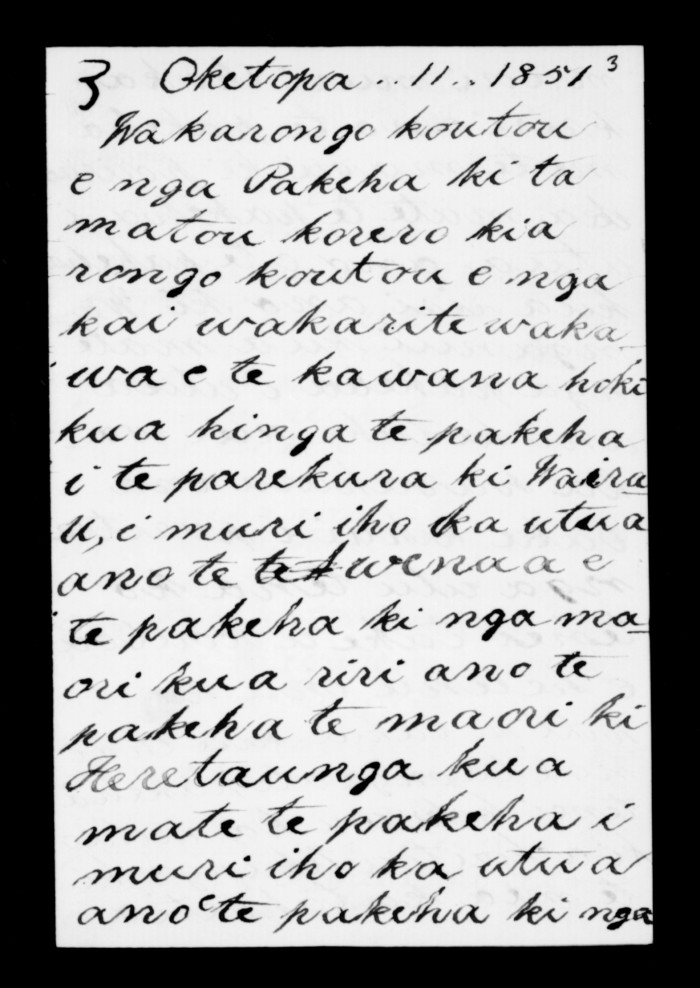 3 Oketopa .. 11 .. 1851 3
Wakarongo koutou
e nga Pakeha ki ta
matou korero kia
rongo koutou e nga
kai wakarite waka
wa e te kawana hoki
kua hinga te pakeha
i te parekura ki Waira
U, i muri iho ka utua
ano te wenaa e
te pakeha ki nga ma-
ori kua riri ano te
pakeha te maori ki
Heretaunga kua
mate te pakeha i
muri iho ka utua
ano e te pakeha ki nga